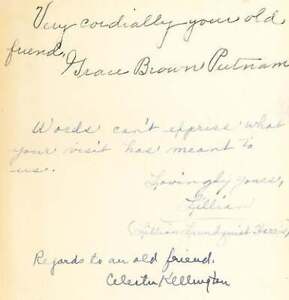 Very cordially your old
friend,
Grace Brown Putnam
Words can't express what
your visit has meant to
us.
Lovingly yours,
Lillian
(Lillian Lundquist
Regards to an old friend.
Celestia Kellington